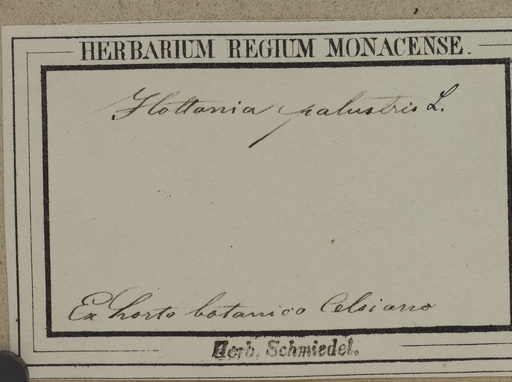 HERBARIUM REGIUM MONACENSE.
Hottonia palustris L.
Ex horto botanico Celsiano
Herb. Schmiedel.